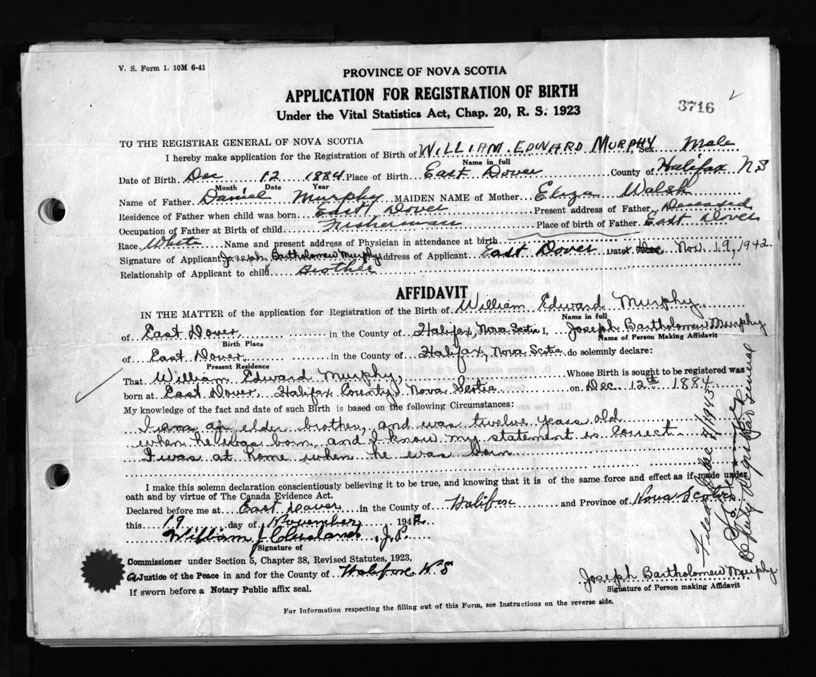 V. S. Form 1. 10M 6-41
PROVINCE OF NOVA SCOTIA
APPLICATION FOR REGISTRATION OF BIRTH
Under the Vital Statistics Act, Chap. 20, R. S. 1923
3716
TO THE REGISTRAR GENERAL OF NOVA SCOTIA
I hereby make application for the Registration of Birth of WILLIAM EDWARD MURPHY, Sex Male
Name in full
Date of Birth Dec 12 1884 Place of Birth East Dover County of Halifax NS
Month Date Year
Name of Father Daniel Murphy MAIDEN NAME of Mother Eliza Walsh
Residence of Father when child was born East Dover Present address of Father Deceased
Occupation of Father at Birth of child Fisherman Place of birth of Father East Dover
Race White Name and present address of Physician in attendance at birth
Signature of Applicant Joseph Bartholomew Murphy Address of Applicant East Dover Date Nov. 19, 1942.
Relationship of Applicant to child Brother
AFFIDAVIT
IN THE MATTER of the application for Registration of the Birth of William Edward Murphy
Name in full
of East Dover in the County of Halifax, Nova Scotia, Joseph Bartholomew Murphy
Birth Place Name of Person Making Affidavit
of East Dover in the County of Halifax, Nova Scotia do solemnly declare:
Present Residence
That William Edward Murphy, Whose Birth is sought to be registered was
born at East Dover, Halifax County, Nova Scotia on Dec. 12th 1884
My knowledge of the fact and date of such Birth is based on the following Circumstances:
I am an elder brother, and was twelve years old
when he was born, and I know my statement is correct.
I was at home when he was born
I make this solemn declaration conscientiously believing it to be true, and knowing that it is of the same force and effect as if made under
oath and by virtue of The Canada Evidence Act.
Declared before me at East Dover in the County of Halifax and Province of Nova Scotia
this 19 day of November 1942
William J. J.P.
Signature of
Commissioner under Section 5, Chapter 38, Revised Statutes, 1923,
A Justice of the Peace in and for the County of Halifax N.S
If sworn before a Notary Public affix seal.
Joseph Bartholomew Murphy
Signature of Person making Affidavit
For Information respecting the filling out of this Form, see Instructions on the reverse side.
Filed 1943
Deputy Registrar General